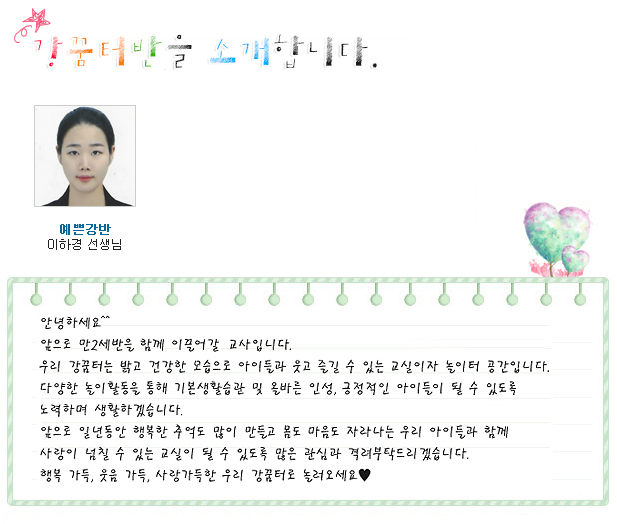 강꿈터반을 소개합니다.
예쁜강반
이하경 선생님
안녕하세요^^
앞으로 만2세반을 함께 이끌어갈 교사입니다.
우리 강꿈터는 밝고 건강한 모습으로 아이들과 웃고 즐길 수 있는 교실이자 놀이터 공간입니다.
다양한 놀이활동을 통해 기본생활습관 및 올바른 인성, 긍정적인 아이들이 될 수 있도록
노력하며 생활하겠습니다.
앞으로 일년동안 행복한 추억도 많이 만들고 몸도 마음도 자라나는 우리 아이들과 함께
사랑이 넘칠 수 있는 교실이 될 수 있도록 많은 관심과 격려부탁드리겠습니다.
행복 가득, 웃음 가득, 사랑가득한 우리 강꿈터로 놀러오세요♥